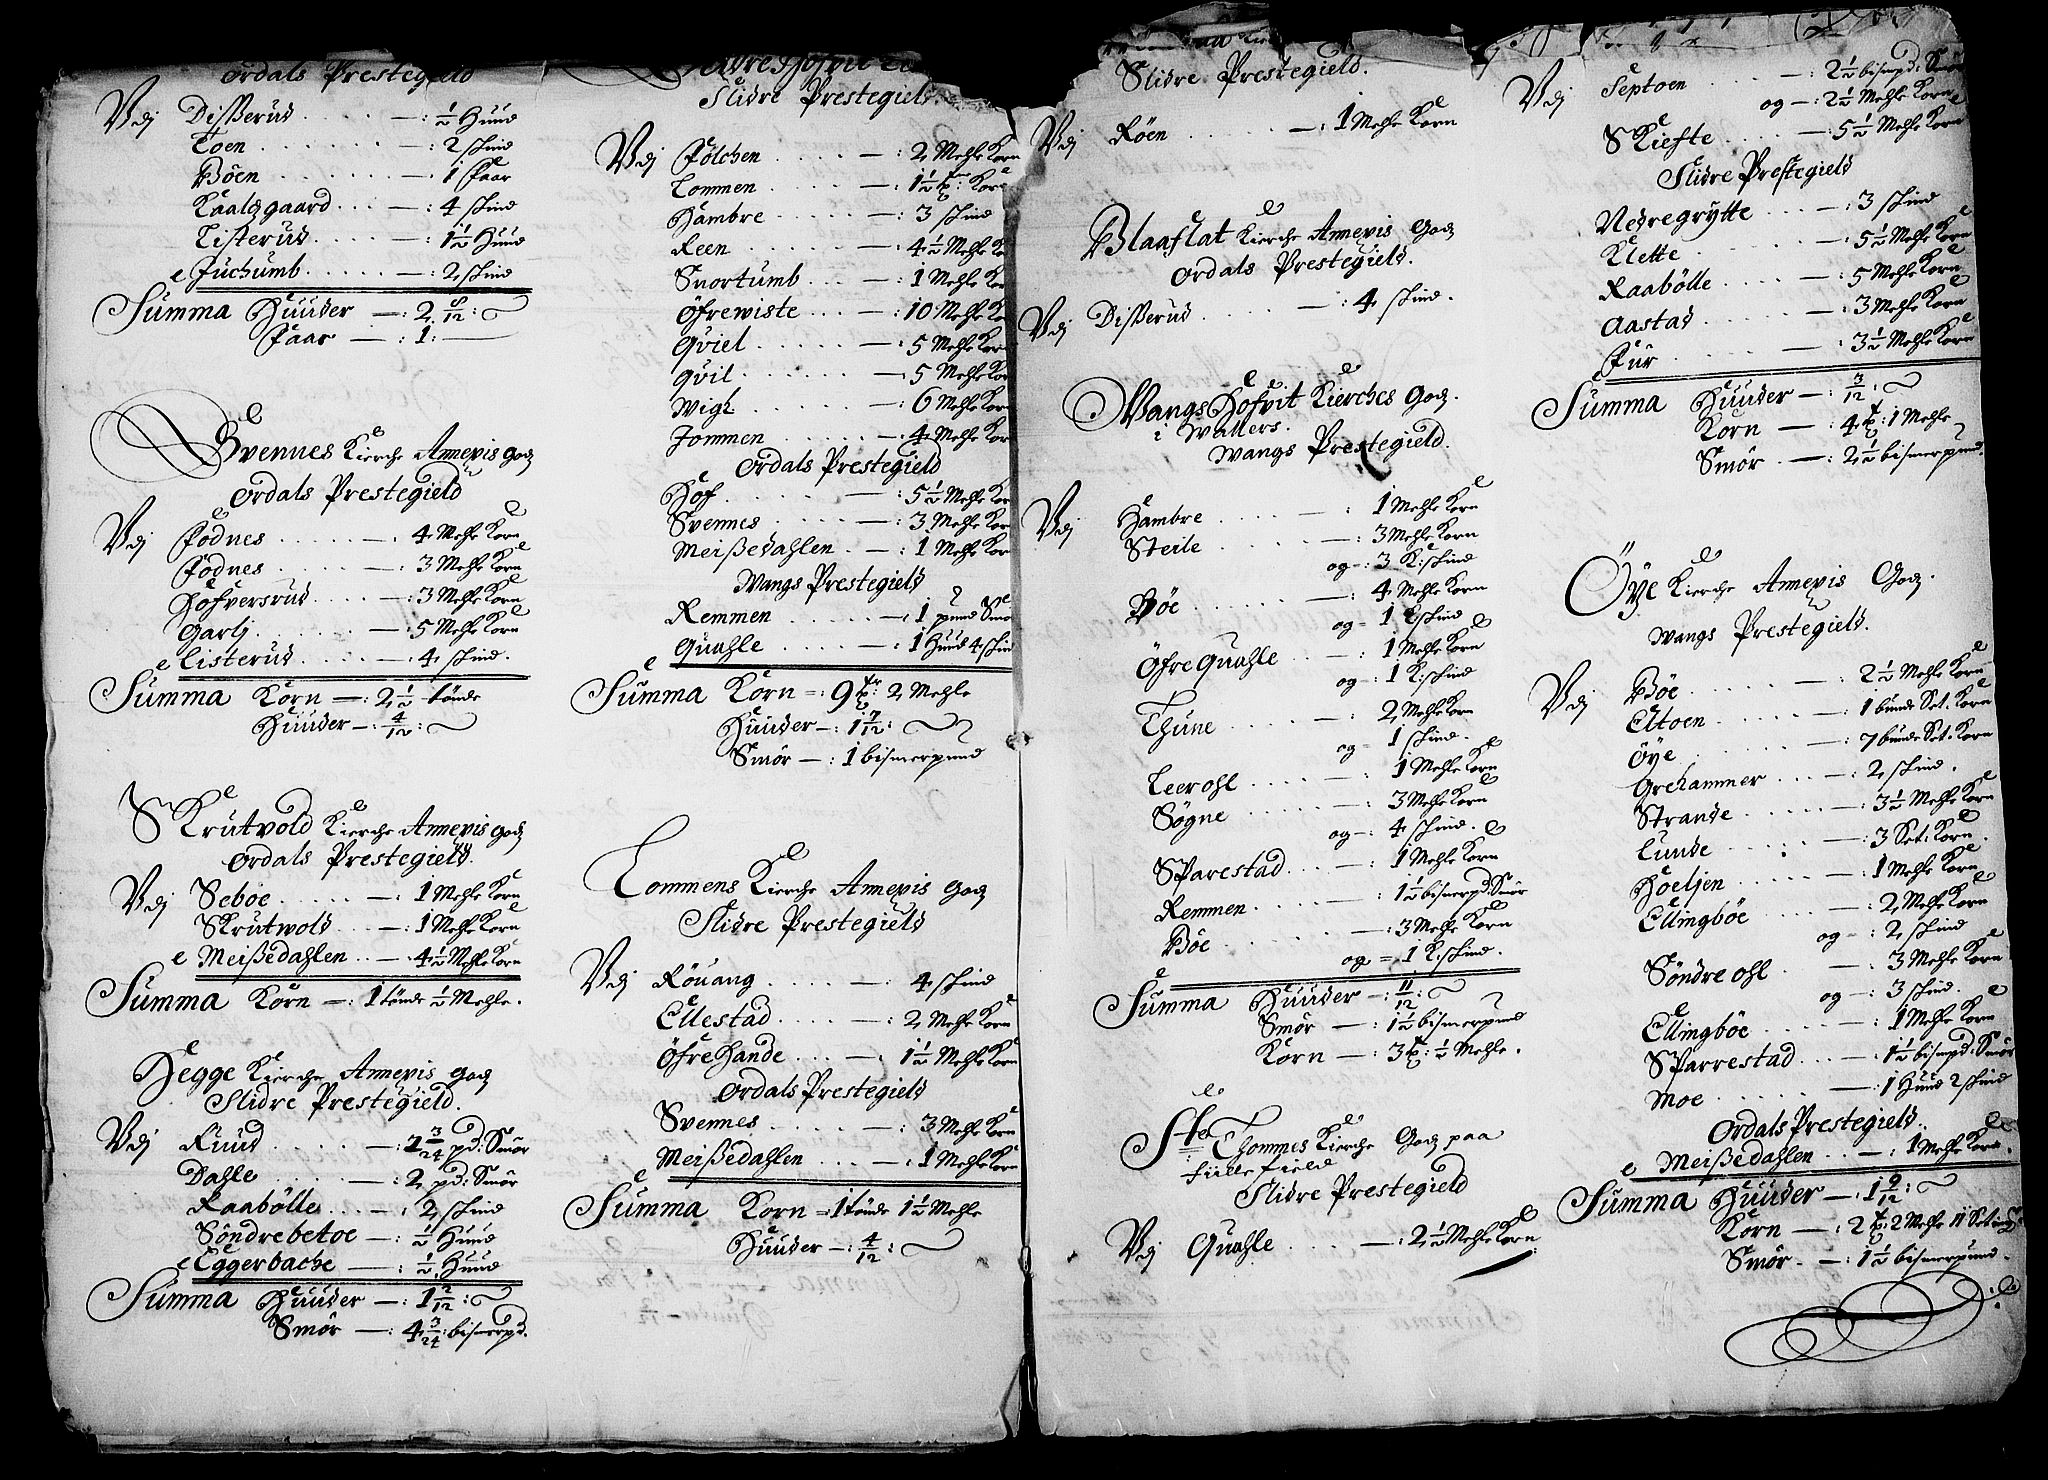 Ordals Prestegield
Vdj Disserud — : ½ Huud
Toen — : 2 skind
Böen — : 1 Faar
Kaalsgaard — : 4 skind
Listerud — : 1½ Huud
e Juchumb — : 2 skind
Summa Huuder — : 2 8/12 :
Faar — : 1 :
Svennes Kierche Annexis Godz
Ordals Prestegield
Vdj Födnes — : 4 Mehle Korn
Födnes — : 3 Mehle Korn
Hofversrud — : 3 Mehle Korn
Garlj — : 5 Mehle Korn
e Listerud — : 4 skind.
Summa Korn — : 2½ tönde
Huuder — : 4/12 :
SKrutvold Kierche Annexis Godz
Ordals Prestegield.
Vdj Seböe — : 1 Mehle Korn
SKrutwold — : 1 Mehle Korn
e Meißedahlen — : 4½ Mehle Korn
Summa Korn — : 1 tönde ½ Mehle.
Hegge Kierche Annexis Godz
Slidre Prestegield.
Vdj Ruud — : 2 3/24 pd: Smör
Dahle — : 2 pd: Smör
Raabölle — : 2 skind
Söndrebetoe — : ½ Huud
e Eggerbache — : ½ Huud
Summa Huuder — : 1 2/12 :
Smör — : 4 3/24 : bismerpd.
Slidre Prestegield.
Vdj Fölchen — : 2 Mehle Korn
Lommen — : 1½ tr: Korn
Hambre — : 3 skind
Reen — : 4½ Mehle Ko
Snortumb — : 1 Mehle Kor
Öfrewiste — : 10 Mehle Ko
Qviel — : 5 Mehle Kor
Qvil — : 5 Mehle Kor
Wigh — : 6 Mehle Korn
Jommen — : 4 Mehle Kor
Ordals Prestegield
Hof — : 5½ Mehle Kor
Svennes — : 3 Mehle Korn
Meißedahlen — : 1 Mehle Kor
Wangs Prestegield
Remmen — : 1 pund Smö
Quahle — : 1 Huud 4 skind
Summa Korn — : 9 tr: 2 Mehle
Huuder — : 1 7/12 :
Smör — : 1 bismerpund
Lommens Kierche Annexis Godz
Slidre Prestegield
Vdj Röuang — : 4 skind
Ellestad — : 2 Mehle Korn
Öfre Hande — : 1½ Mehle Korn
Ordals Prestegield
Svennes — : 3 Mehle Korn
Meißedahlen — : 1 Mehle Korn
Summa Korn — : 1 tönde 1½ Mehle
Huuder — : 4/12 :
Slidre Prestegield.
Vdj Röen — : 1 Mehle Korn
Blaaflat Kierche Annexis Godz
Ordals Prestegield.
Vdj Disserud — : 4 skind.
Wangs Hofvit Kierches Godz.
i Wallers.
Wangs Prestegield.
Vdj Hambre — : 1 Mehle Korn
Steile — : 3 Mehle Korn
og — : 3 K: skind
Böe — : 4 Mehle Korn
og — 1 K: skind
Öfre Quahle — : 1 Mehle Korn
og — : 1 K: skind
Thune — : 2 Mehle Korn
og — 1 skind.
Leerohl — : 1 Mehle Korn
Sögne — : 3 Mehle Korn
og — : 4 skind.
SParestad — : 1 Mehle Korn
Remmen — : 1½ bismerpd: Smör
Böe — : 3 Mehle Korn
og — 1 K: skind.
Summa Huuder — : 11/12 :
Smör — : 1½ bismerpund
Korn — : 3 t: ½ Mehle.
Ste Thommes Kierche Godz paa
Fille Field
Slidre Prestegield
Vdj Quahle — : 2½ Mehle Korn
Vdj Septoen — : 2½ bismpd: Smör
og — : 2½ Mehle Korn
SKiefte — : 5½ Mehle Korn
Slidre Prestegield
Nedregrÿtte — : 3 skind
Klette — : 5½ Mehle Korn
Raabölle — : 5 Mehle Korn
Aastad — : 3 Mehle Korn
Fur — : 3½ Mehle Korn
Summa Huuder — : 3/12 :
Korn — : 4 t: 1 Mehle
Smör — : 2½ bismerpund.
Öÿe Kierche Annexis Godz.
Wangs Prestegield.
Vdj Böe — : 2½ Mehle Korn
Eltoen — : 1 bunde Set. Korn
Öÿe — : 7 bunde Set. Korn
Grehammer — : 2 skind.
Strande — : 3½ Mehle Korn
Lunde — : 3 Set: Korn.
Höeljen — : 1 Mehle Korn
Ellingböe — : 2 Mehle Korn
og — : 2 skind
Söndre ohl — : 3 Mehle Korn
og — : 3 skind.
Ellingböe — : 1 Mehle Korn
SParrestad — : 1½ bismpd: Smör
Moe — : 1 Huud 2 skind
Ordals Prestegield.
e Meißedahlen — : 1 Mehle Korn.
Summa Huuder — : 1 9/12 :
Korn — : 2 t: 2 Mehle 11 Seting
Smör — : 1½ bismerpund.